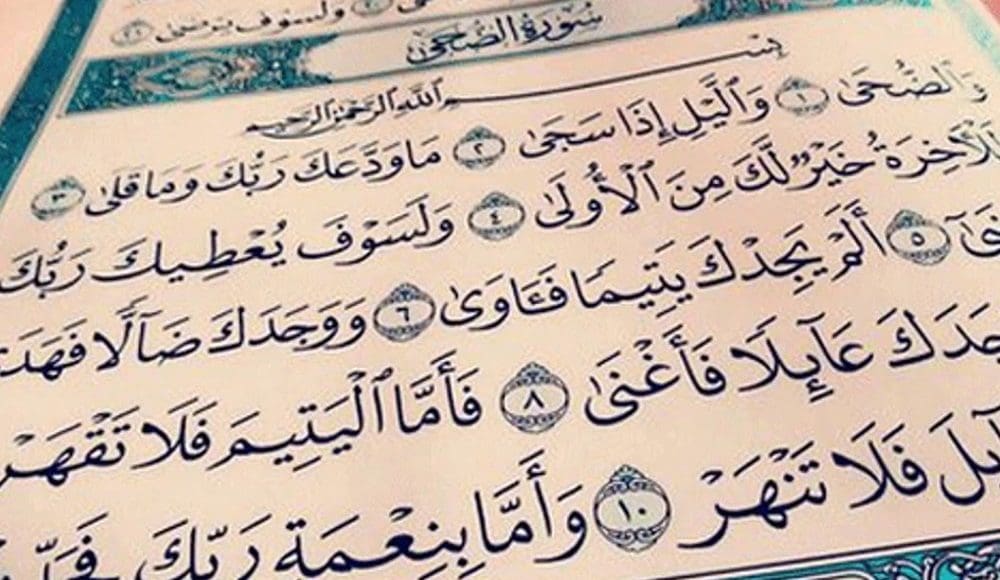 وَلَسَوْفَ يَرْضَىٰ ٢١
سُورَةُ الضُّحَىٰ
بِسْمِ ٱللَّهِ ٱلرَّحْمَٰنِ ٱلرَّحِيمِ
وَٱلضُّحَىٰ ١ وَٱلَّيْلِ إِذَا سَجَىٰ ٢ مَا وَدَّعَكَ رَبُّكَ وَمَا قَلَىٰ ٣
لَلْأَخِرَةُ خَيْرٌ لَّكَ مِنَ ٱلْأُولَىٰ ٤ وَلَسَوْفَ يُعْطِيكَ رَبُّكَ
٥ أَلَمْ يَجِدْكَ يَتِيمًا فَـَٔاوَىٰ ٦ وَوَجَدَكَ ضَآلًّا فَهَدَ
جَدَكَ عَآئِلًا فَأَغْنَىٰ ٨ فَأَمَّا ٱلْيَتِيمَ فَلَا تَقْهَرْ
ئِلَ فَلَا تَنْهَرْ ١٠ وَأَمَّا بِنِعْمَةِ رَبِّكَ